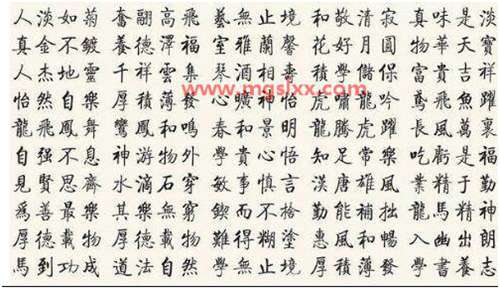 人淡如菊 奮翮高飛 藝無止境 和敬清寂 真味是淡
真金不鍍 養德澤福 室雅蘭馨 花好月圓 物華天寶
人杰地靈 千祥雲集 琴酒相 學儲 富貴吉祥
www.mqslxx.com
怡然自樂 厚積薄發 心曠神怡 虎嘯龍吟 鳶飛魚躍
龍飛鳳舞 鸞鳳和鳴 春和景明 龍騰虎躍 長風萬裏
自強不息 神游物外 學貴心悟 知足常樂 吃虧是福
見賢思齊 水滴石穿 敏事慎言 漢唐雄風 業精于勤
為善最樂 其樂無窮 鍥而不捨 勤能補拙 龍馬精神
厚德載物 厚德載物 難得糊塗 惠風和暢 入幽出朗
馬到功成 道法自然 學無止境 厚積薄發 學書養志